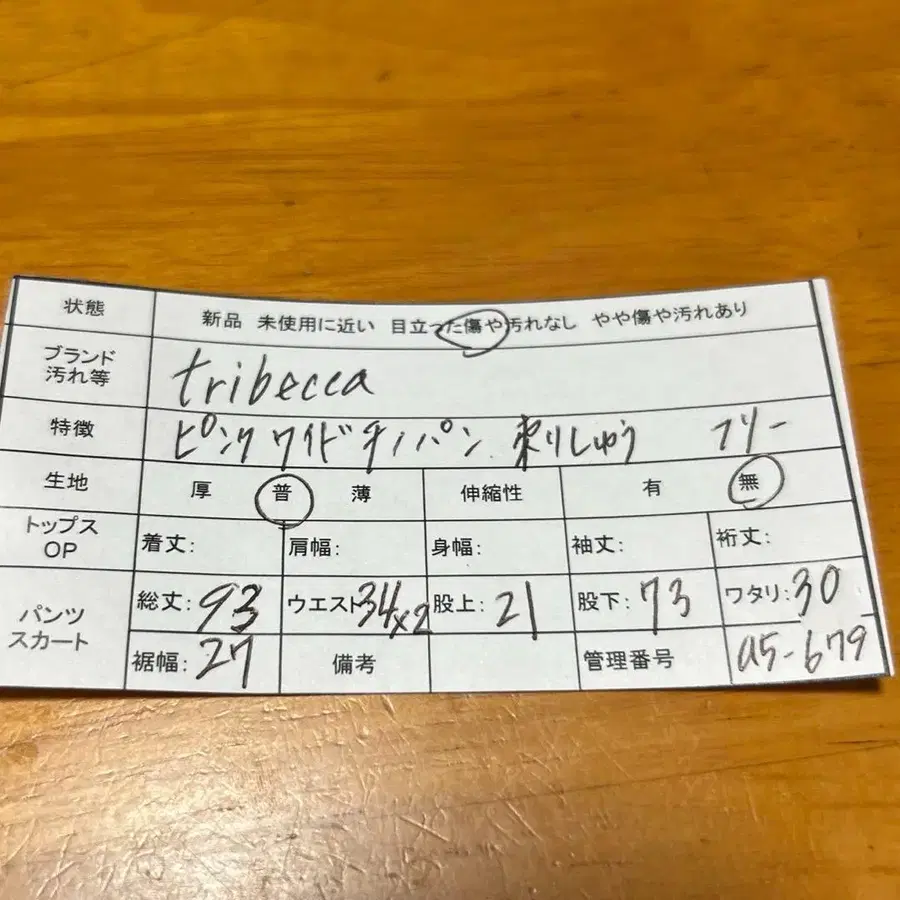 状態 新品 未使用に近い 目立った傷や汚れなし やや傷や汚れあり
ブランド
汚れ等 tribecca
特徴 ピンク ワイド チノパン 刺しゅう フリー
生地 厚 普 薄 伸縮性 有 無
トップス
OP 着丈: 肩幅: 身幅: 袖丈: 裄丈:
パンツ
スカート 総丈: 93 ウエスト34×2 股上: 21 股下: 73 ワタリ: 30
裾幅: 27 備考 管理番号 a5-679